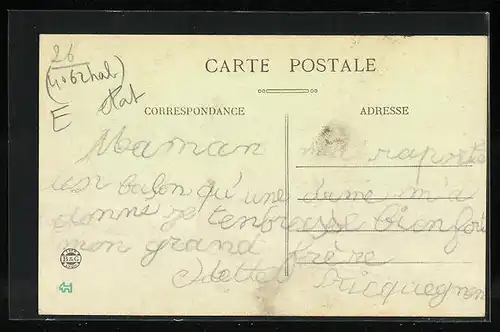 26
(4062 hab)
E état
CARTE POSTALE
CORRESPONDANCE
ADRESSE
Maman m'a raporte
un balon qu'une dame m'a
donne je tenbrasse bien fort
mon grand frère
Odette
B&G